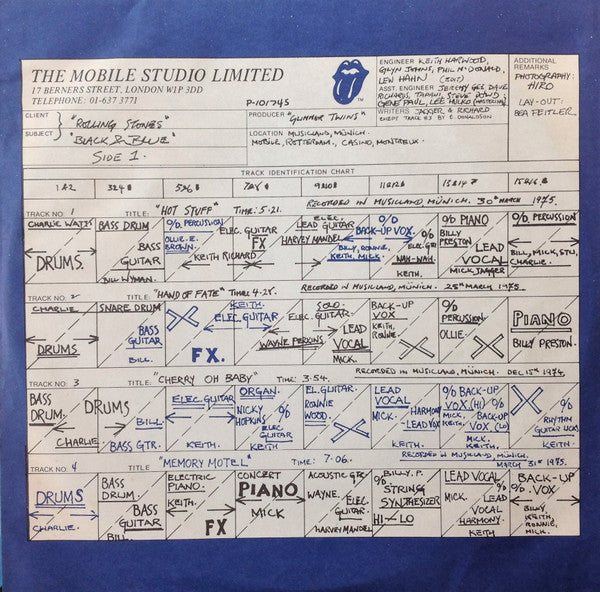 THE MOBILE STUDIO LIMITED
17 BERNERS STREET, LONDON W1P 3DD
TELEPHONE: 01-637 3771
P-101745
TM
ENGINEER KEITH HARWOOD,
GLYN JOHNS, PHIL McDONALD,
LEW HAHN (EDIT)
ASST. ENGINEER JEREMY GEE, DAVE
RICHARDS, TAPANI, STEVE DOWD;
GENE PAUL, LEE HULKO (MASTERING)
WRITERS JAGGER & RICHARD
EXCEPT TRACK #3 BY E. DONALDSON
ADDITIONAL
REMARKS
PHOTOGRAPHY:
HIRO
LAY-OUT:
BEA FEITLER.
CLIENT "ROLLING STONES"
SUBJECT "BLACK & BLUE"
SIDE 1.
PRODUCER "GLIMMER TWINS"
LOCATION MUSICLAND, MUNICH.
MOBILE, ROTTERDAM, CASINO, MONTREUX.
TRACK IDENTIFICATION CHART
1 & 2 3 & 4 5 & 6 7 & 8 9 & 10 11 & 12 13 & 14 15 & 16
TRACK NO. 1 TITLE: "HOT STUFF" TIME: 5-21. RECORDED IN MUSICLAND, MUNICH. 30th MARCH 1975.
CHARLIE WATTS
DRUMS.
BASS DRUM
BASS
GUITAR
BILL WYMAN.
% PERCUSSION
OLLIE. E.
BROWN.
KEITH RICHARD
ELEC GUITAR
FX
ELEC.
LEAD GUITAR
HARVEY MANDEL
%
BACK-UP VOX.
BILLY, RONNIE,
KEITH, MICK.
% ELEC. GTR
WAH-WAH.
KEITH.
% PIANO
BILLY
PRESTON
LEAD
VOCAL
MICK JAGGER
% PERCUSSION
BILL, MICK, STU,
CHARLIE.
TRACK NO. 2 TITLE: "HAND OF FATE" TIME: 4-28. RECORDED IN MUSICLAND, MUNICH. 25th MARCH, 1975.
CHARLIE
DRUMS
SNARE DRUM
BASS
GUITAR
BILL.
KEITH.
ELEC. GUITAR
FX.
SOLO
ELEC. GUITAR.
WAYNE PERKINS
LEAD
VOCAL
MICK.
BACK-UP
VOX
KEITH,
RONNIE
%
PERCUSSION
OLLIE.
PIANO
BILLY PRESTON.
TRACK NO. 3 TITLE: "CHERRY OH BABY" TIME: 3-54. RECORDED IN MUSICLAND, MUNICH. DEC. 15th 1974.
BASS
DRUM.
DRUMS
CHARLIE
BILL.
BASS GTR.
ELEC. GUITAR
KEITH.
ORGAN.
NICKY
HOPKINS
%
ELEC
GUITAR
KEITH
EL. GUITAR.
RONNIE
WOOD.
LEAD
VOCAL
MICK.
HARMONY
LEAD VOX
KEITH.
% BACK-UP
VOX. (HI) %
MICK, KEITH.
BACK-UP
VOX. (LO)
MICK, KEITH.
%
RHYTHM
GUITAR LICKS
KEITH.
TRACK NO. 4 TITLE "MEMORY MOTEL" TIME: 7-06. RECORDED IN MUSICLAND, MUNICH. MARCH 31st 1975.
DRUMS
CHARLIE.
BASS
DRUM.
BASS
GUITAR
BILL.
ELECTRIC
PIANO.
KEITH.
FX
CONCERT
PIANO
MICK
ACOUSTIC GTR.
WAYNE.
ELEC.
GUITAR.
HARVEY MANDEL
% BILLY. P.
STRING
SYNTHESIZER
HI – LO
LEAD VOCAL
MICK. %
LEAD
VOCAL
HARMONY.
KEITH
BACK-UP
% VOX.
BILLY,
KEITH,
RONNIE,
MICK.